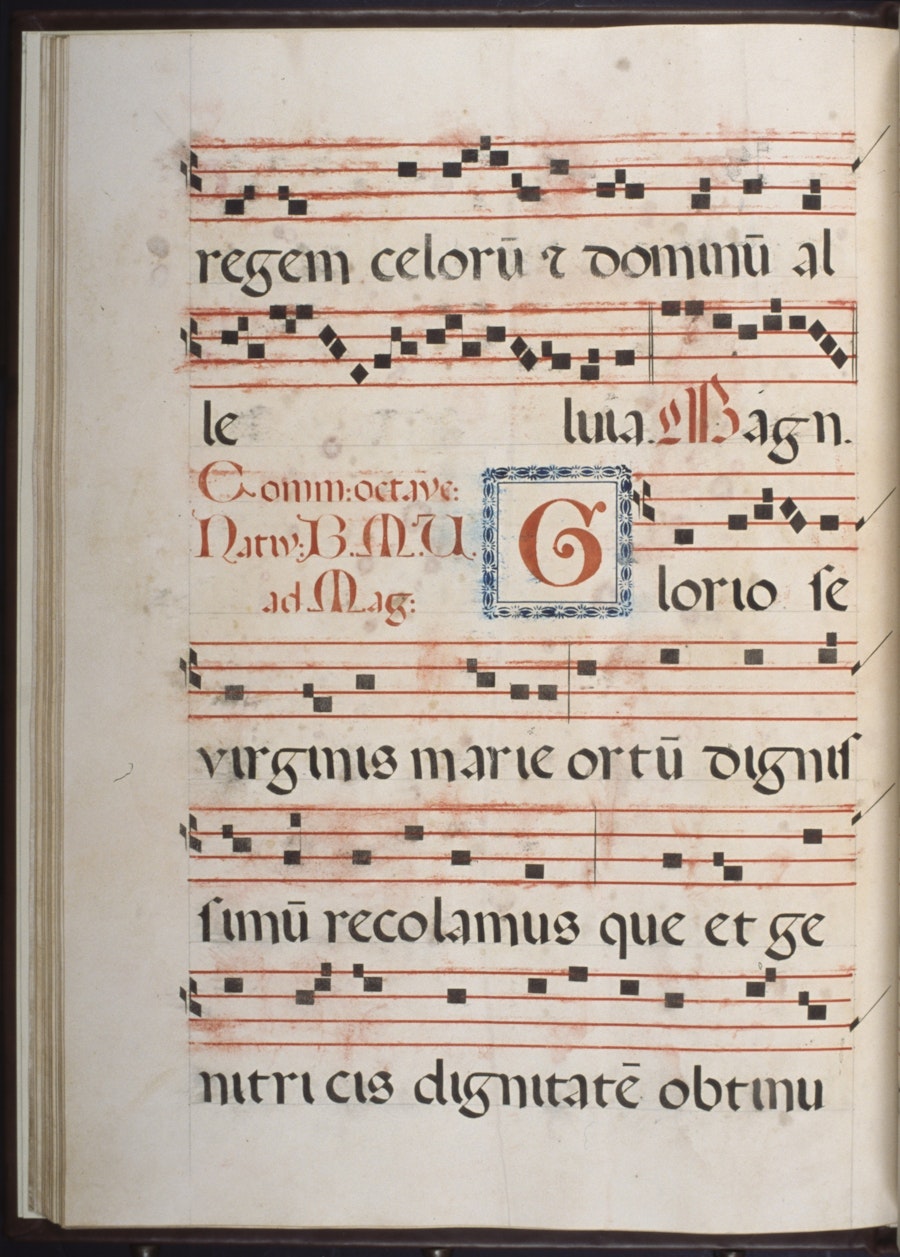 regem celorū ⁊ dominū al
le luia. Magn.
Comm: octave:
Nativ: B. M. V.
ad Mag:
Glorio se
virginis marie ortū digniſ
ſimū recolamus que et ge
nitricis dignitatē obtinu